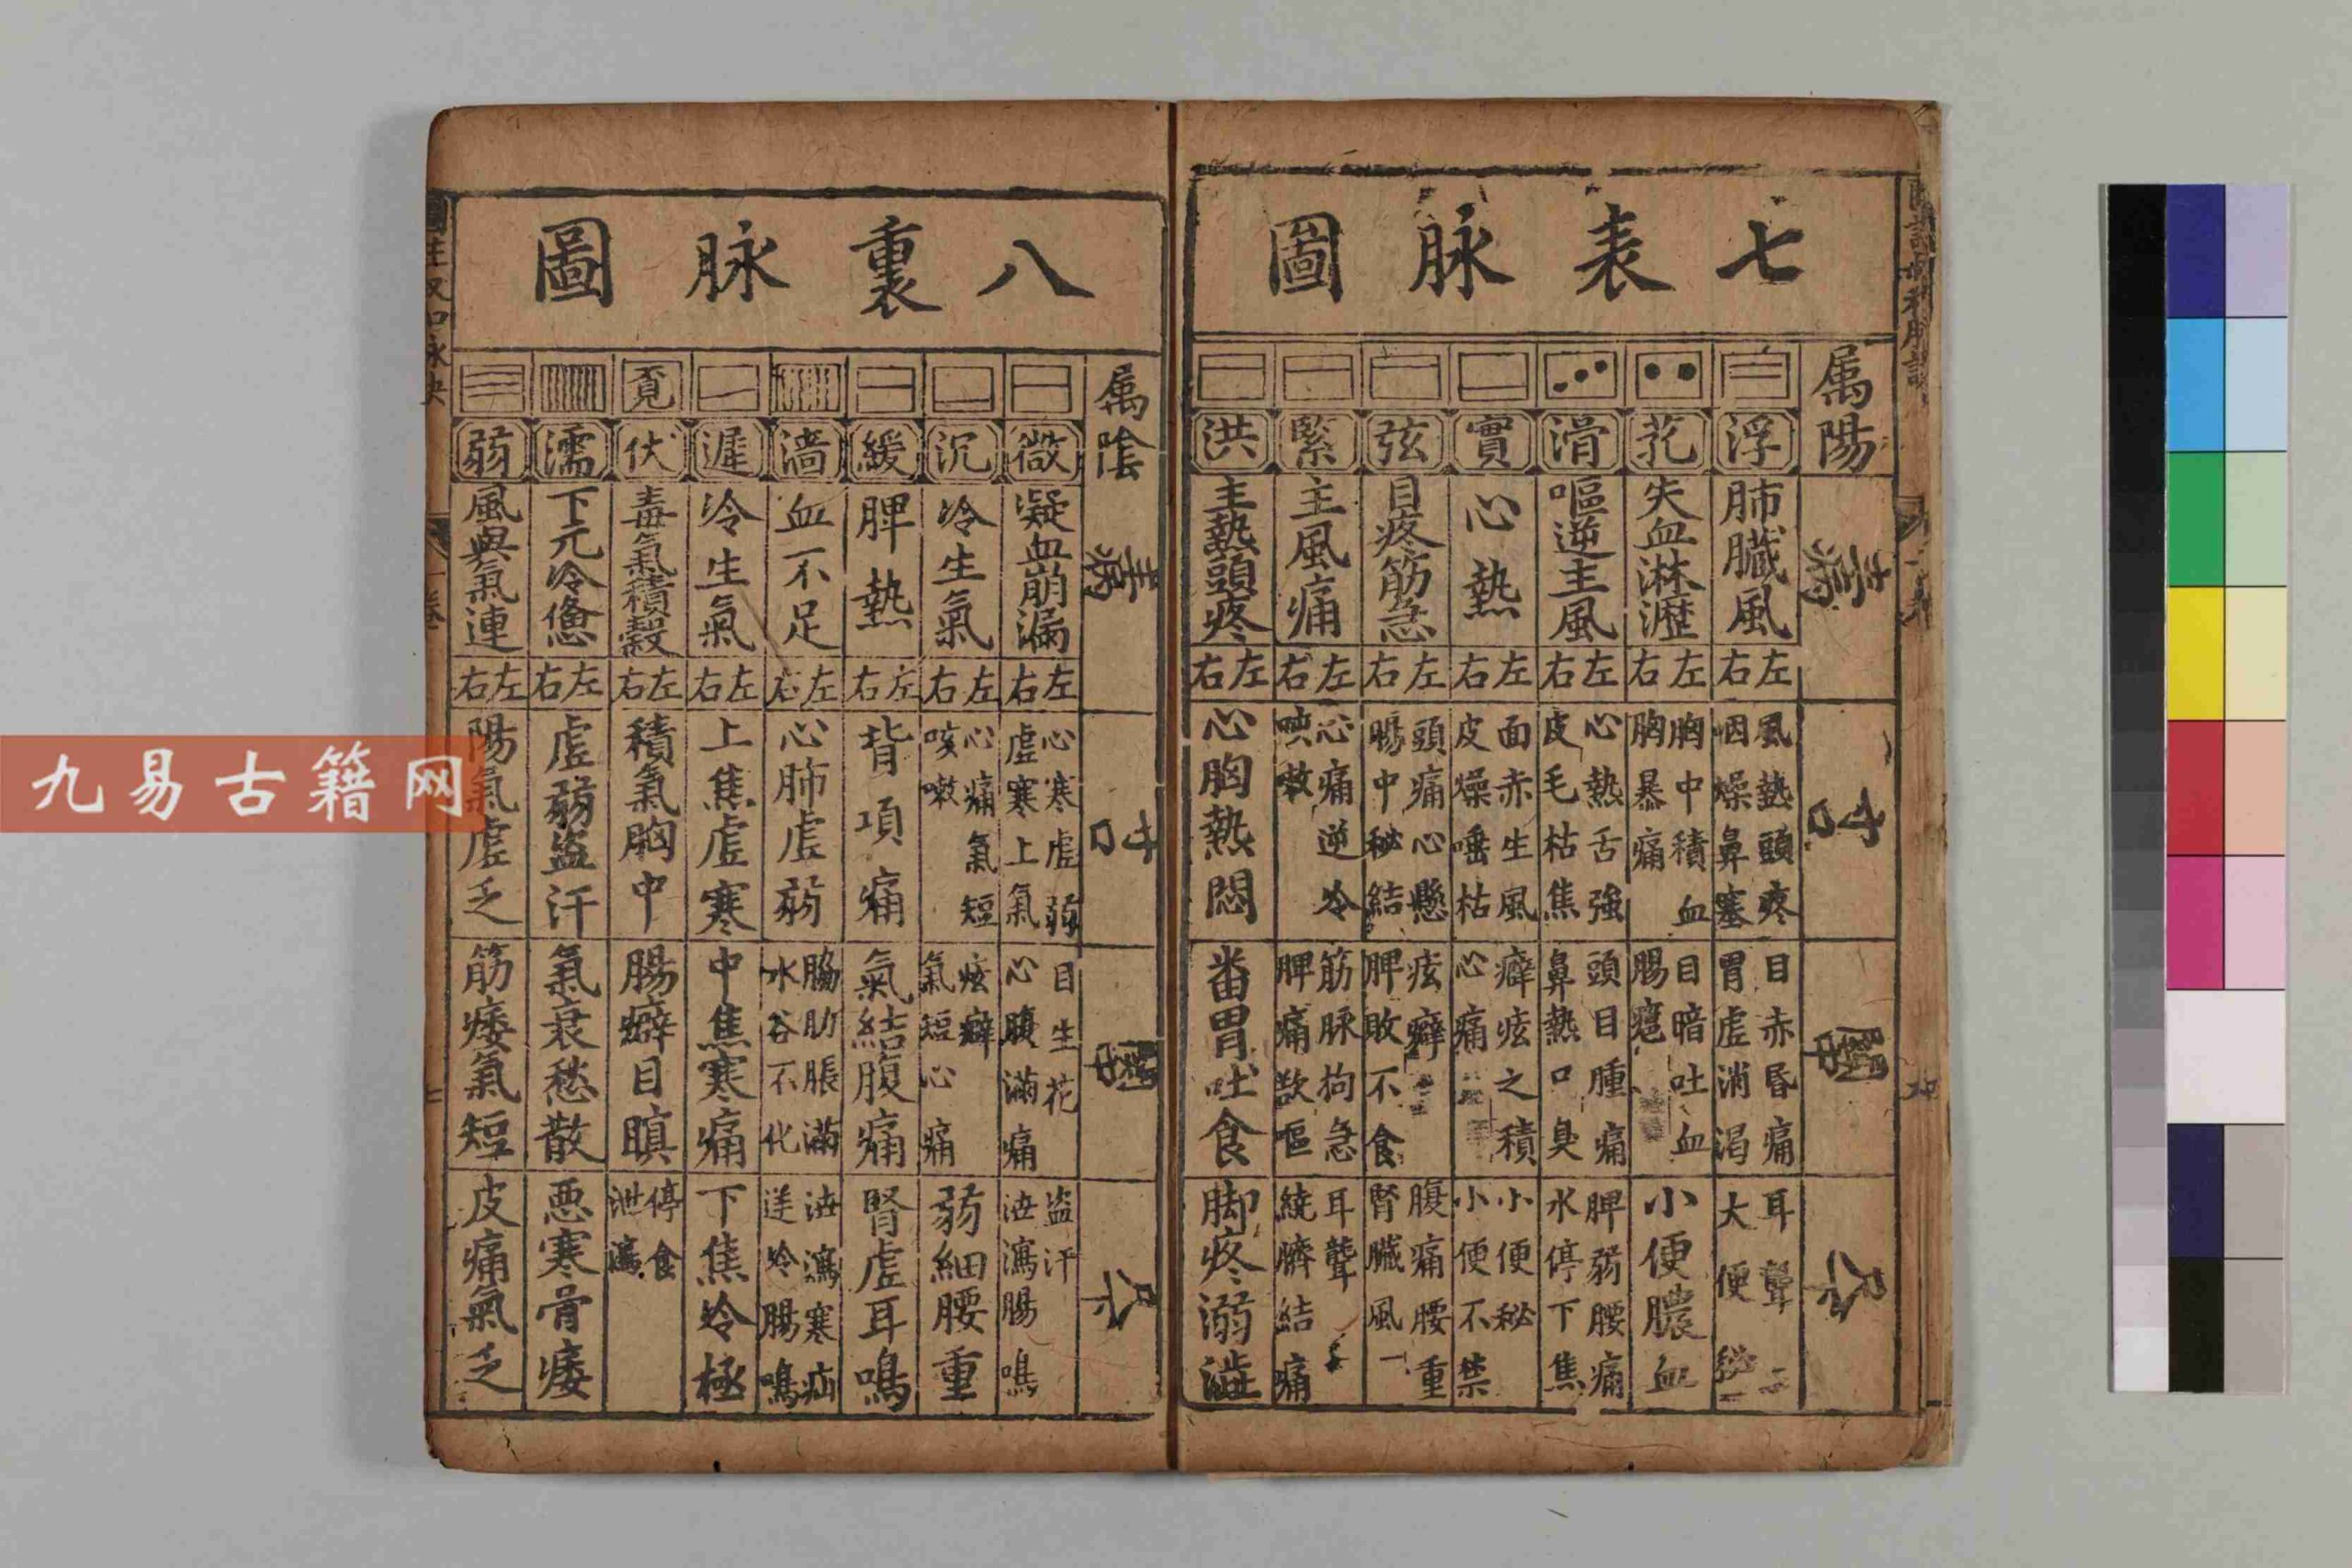 七表脉圖
属陽
浮
芤
滑
實
弦
緊
洪
主病
肺臟風
失血淋瀝
嘔逆主風
心熱
目疼筋急
主風痛
主熱頭疼
左右
左右
左右
左右
左右
左右
左右
寸口
風熱頭疼
咽燥鼻塞
胸中積血
胸暴痛
心熱舌強
皮毛枯焦
面赤生風
皮燥唾枯
頭痛心懸
腸中秘結
心痛逆冷
咳嗽
心胸熱悶
關中
目赤昏痛
胃虛消渴
目暗吐血
腸癰
頭目腫痛
鼻熱口臭
癖痃之積
心痛
痃癖
脾敗不食
筋脉拘急
脾痛欬嘔
番胃吐食
尺
耳聾
大便秘
小便膿血
脾弱腰痛
水停下焦
小便秘
小便不禁
腹痛腰重
腎臟風
耳聾
繞臍結痛
脚疼溺澁
八裏脉圖
属陰
微
沉
緩
濇
遲
伏
濡
弱
覔
主病
凝血崩漏
冷生氣
脾熱
血不足
冷生氣
毒氣積穀
下元冷憊
風與氣連
左右
左右
左右
左右
左右
左右
左右
左右
寸口
心寒虛弱
虛寒上氣
心痛氣短
咳嗽
背項痛
心肺虛弱
上焦虛寒
積氣胸中
虛弱盜汗
陽氣虛乏
關中
目生花
心腹滿痛
痃癖
氣短心痛
氣結腹痛
脇肋脹滿
水谷不化
中焦寒痛
腸癖目瞋
氣衰愁散
筋痿氣短
尺
盜汗
泄瀉腸鳴
弱細腰重
腎虛耳鳴
泄瀉寒疝
逆冷腸鳴
下焦冷極
停食
泄瀉
惡寒骨痿
皮痛氣乏
九易古籍网